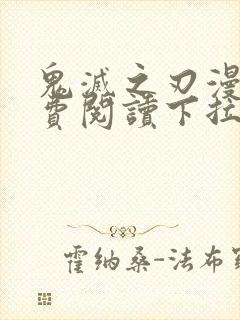 鬼滅之刃漫
費閱讀下拉
霍納桑-法布